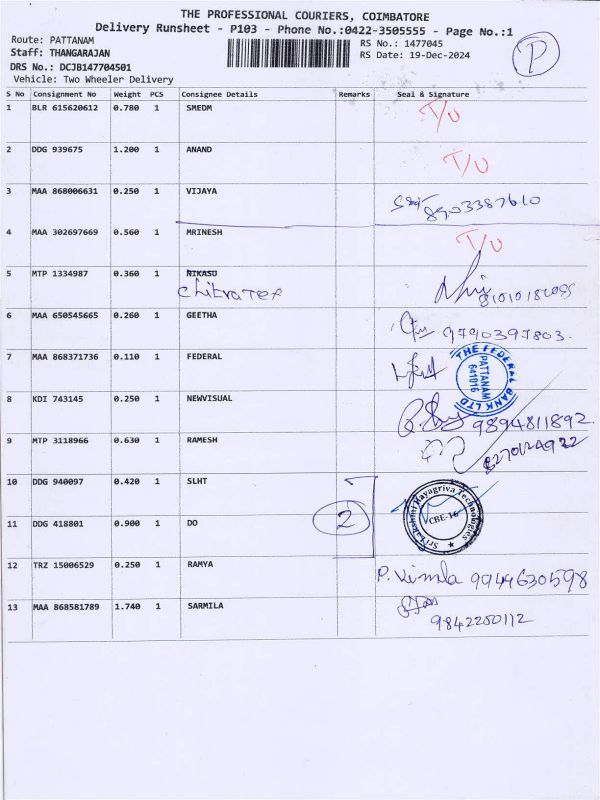 THE PROFESSIONAL COURIERS, COIMBATORE
Delivery Runsheet - P103 - Phone No.:0422-3505555 - Page No.:1
Route: PATTANAM
RS No.: 1477045
Staff: THANGARAJAN
RS Date: 19-Dec-2024
P
DRS No.: DCJB147704501
Vehicle: Two Wheeler Delivery
S No Consignment No Weight PCS Consignee Details Remarks Seal & Signature
1 BLR 615620612 0.780 1 SMEDM T/U
2 DDG 939675 1.200 1 ANAND T/U
3 MAA 868006631 0.250 1 VIJAYA 8903387610
4 MAA 302697669 0.560 1 MRINESH T/U
5 MTP 1334987 0.360 1 NIKASU
chitratex
6 MAA 650545665 0.260 1 GEETHA 9790397803.
7 MAA 868371736 0.110 1 FEDERAL
THE FEDERAL BANK LTD
PATTANAM
641016
8 KDI 743145 0.250 1 NEWVISUAL 9894811892
9 MTP 3118966 0.630 1 RAMESH
10 DDG 940097 0.420 1 SLHT
Sri Lakshmi Hayagriva Technologies
CBE-16
11 DDG 418801 0.900 1 DO 2
12 TRZ 15006529 0.250 1 RAMYA P. 9949630598
13 MAA 868581789 1.740 1 SARMILA
9842250112